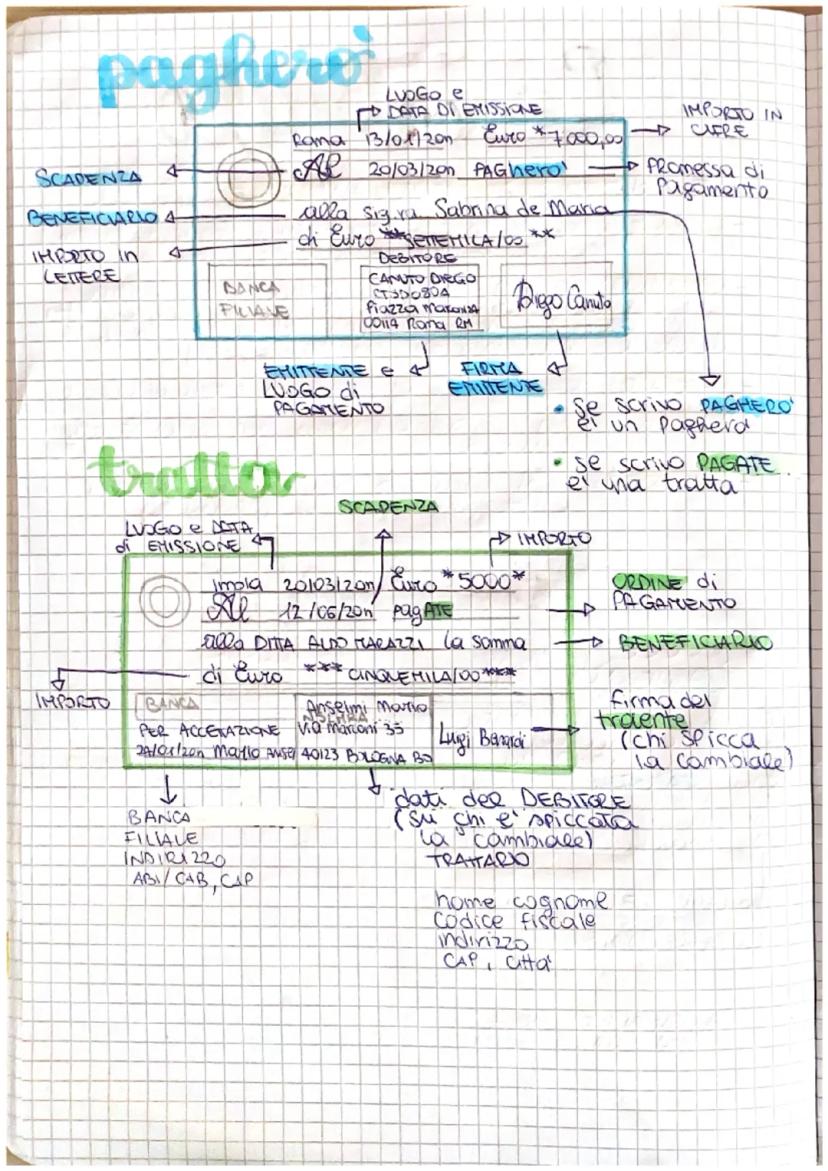 pagherò
LUOGO e
DATA DI EMISSIONE
IMPORTO IN
CIFRE
Roma 13/01/20n Euro *7000,00
SCADENZA
Al 20/03/20n PAGherò
Promessa di
Pagamento
BENEFICIARIO
alla sig.ra Sabrina de Maria
IMPORTO in
LETTERE
di Euro **SETTEMILA/00 **
DEBITORE
BANCA
FILIALE
CANUTO DIEGO
00114 Roma RM
Diego Canuto
EMITTENTE e
LUOGO di
PAGAMENTO
FIRMA
EMITTENTE
• se scrivo PAGHERO'
e' un Pagherò
• se scrivo PAGATE
e' una tratta
tratta
SCADENZA
LUOGO e DATA
di EMISSIONE
IMPORTO
imola 20/03/20n Euro *5000*
Al 12/06/20n pagATE
ORDINE di
PAGAMENTO
alla DITTA ALDO MARAZZI la somma
BENEFICIARIO
di Euro *** CINQUEMILA/00 ****
IMPORTO
BANCA
Anselmi Mario
PER ACCETTAZIONE
Via Marconi 35
Mario Ansel 40123 BOLOGNA BO
Luigi Berardi
firma del
traente
(chi spicca
la cambiale)
BANCA
FILIALE
INDIRIZZO
ABI/CAB, CAP
dati del DEBITORE
(su chi e' spiccata
la cambiale)
TRATTARIO
nome cognome
codice fiscale
indirizzo
CAP, citta'